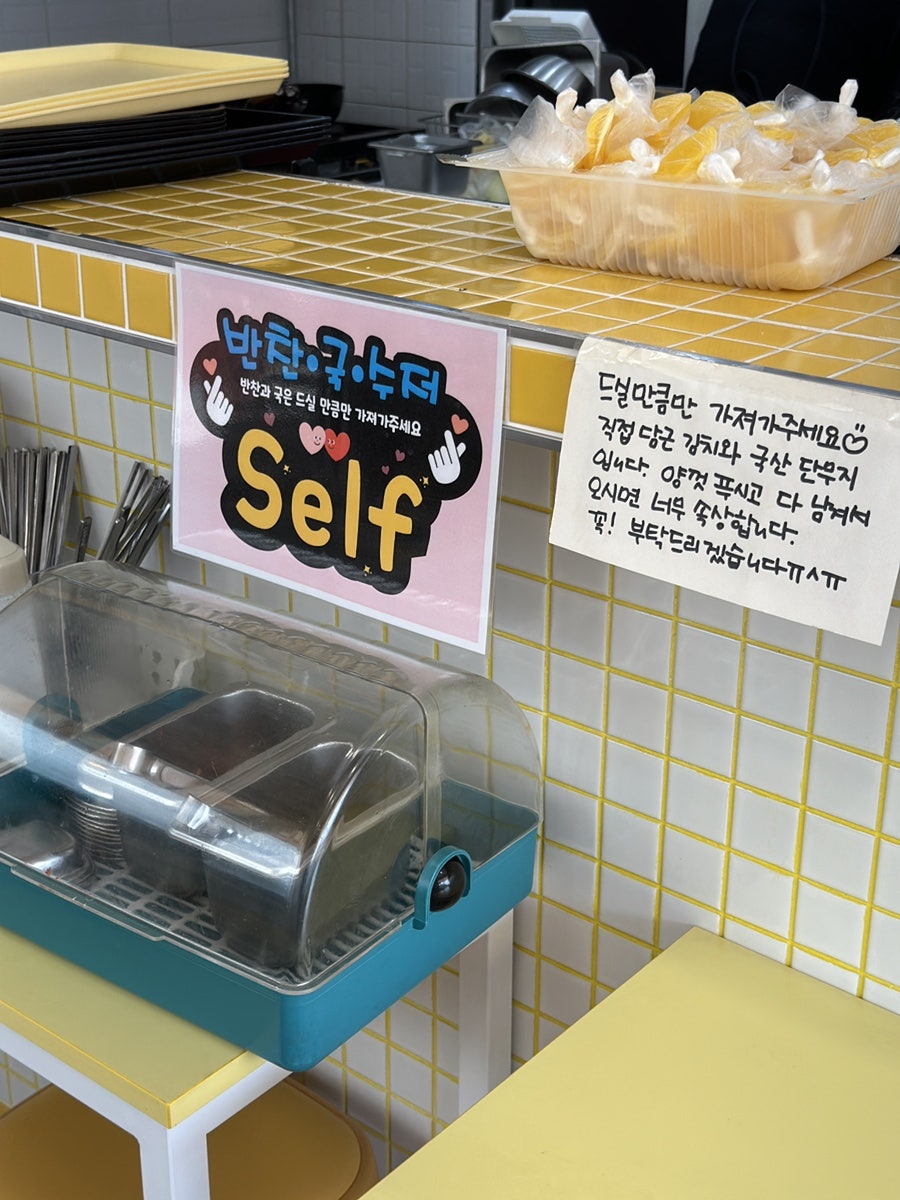 반찬·국·수저
반찬과 국은 드실 만큼만 가져가주세요
Self
드실만큼만 가져가주세요
직접 담근 김치와 국산 단무지
입니다. 양껏 푸시고 다 남겨서
오시면 너무 속상합니다.
꼭! 부탁드리겠습니다ㅠㅅㅠ